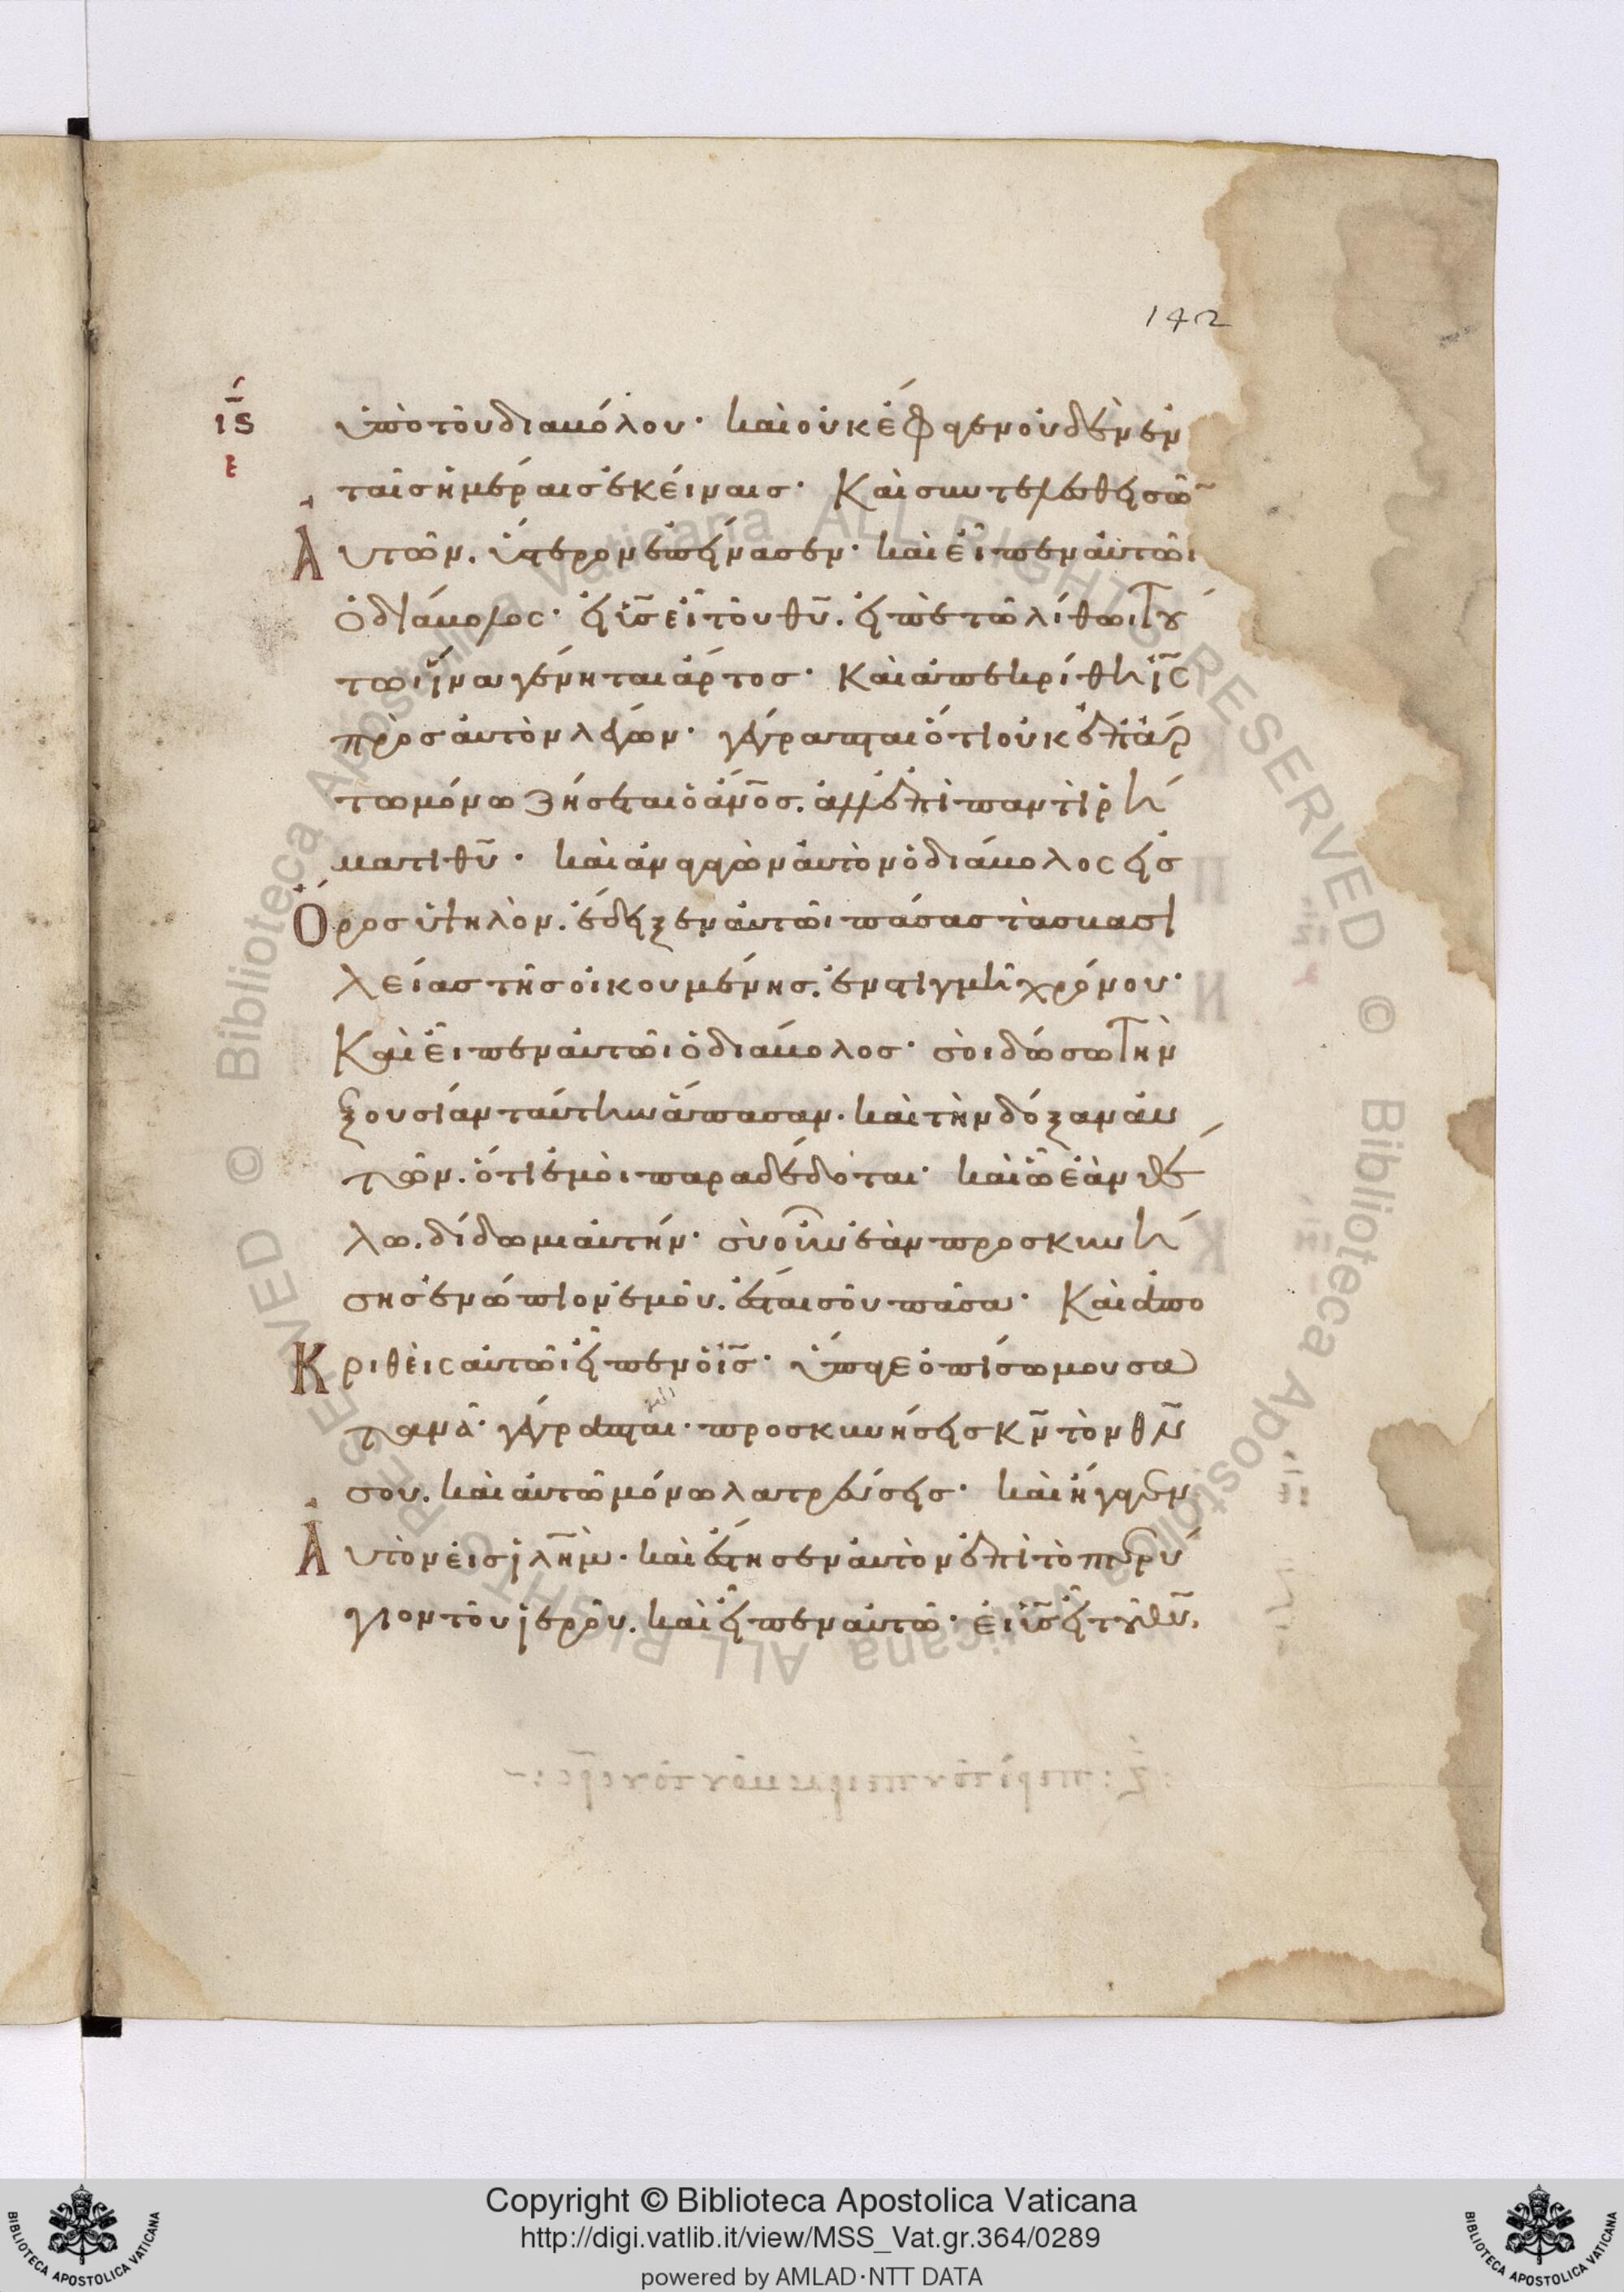 142
ις
ε
ὑπὸ τοῦ διαβόλου· καὶ οὐκ ἔφαγεν οὐδὲν ἐν
ταῖς ἡμέραις ἐκείναις· Καὶ συντελεσθεισῶ̅
Αὐτῶν. ὕστερον ἐπείνασεν· καὶ εἶπεν αὐτῶι
ὁ διάβολος· εἰ υ̅ς̅ εἶ τοῦ θ̅υ̅. εἰπὲ τῶ λίθωι τού
τωι ἵνα γένηται ἄρτος· Καὶ ἀπεκρίθη ι̅ς̅
πρὸς αὐτὸν λέγων· γέγραπται ὅτι οὐκ ἐπ' ἄρ
τω μόνω ζήσεται ὁ ἄ̅ν̅ο̅ς̅. ἀλλ' ἐπὶ παντὶ ῥή
ματι θ̅υ̅· καὶ ἀναγαγὼν αὐτὸν ὁ διάβολος εἰς
Ὄρος ὑψηλὸν. ἔδειξεν αὐτῶι πάσας τὰς βασι
λείας τῆς οἰκουμένης. ἐν στιγμῆ χρόνου·
Καὶ εἶπεν αὐτῶι ὁ διάβολος· σοὶ δώσω τὴν ἐ
ξουσίαν ταύτην ἅπασαν. καὶ τὴν δόξαν αὐ
τῶν. ὅτι ἐμοὶ παραδέδοται· καὶ ὧ ἐὰν θέ
λω. δίδωμι αὐτήν· σὺ οὖν ἐὰν προσκυνή
σης ἐνώπιον ἐμοῦ. ἔσται σοῦ πᾶσα· Καὶ ἀπο
Κριθεὶς αὐτῶι εἶπεν ὁ ι̅ς̅· ὕπαγε ὀπίσω μου σα
τανᾶ· γέγραπται· προσκυνήσεις κ̅ν̅ τὸν θ̅ν̅
σου. καὶ αὐτῶ μόνω λατρεύσεις· καὶ ἤγαγεν
Αὐτὸν εἰς ι̅λ̅η̅μ̅· καὶ ἔστησεν αὐτὸν ἐπὶ τὸ πτερύ
γιον τοῦ ἱεροῦ. καὶ εἶπεν αὐτῶ· εἰ υ̅ς̅ εἶ τοῦ θ̅υ̅.
Copyright © Biblioteca Apostolica Vaticana
http://digi.vatlib.it/view/MSS_Vat.gr.364/0289
powered by AMLAD·NTT DATA